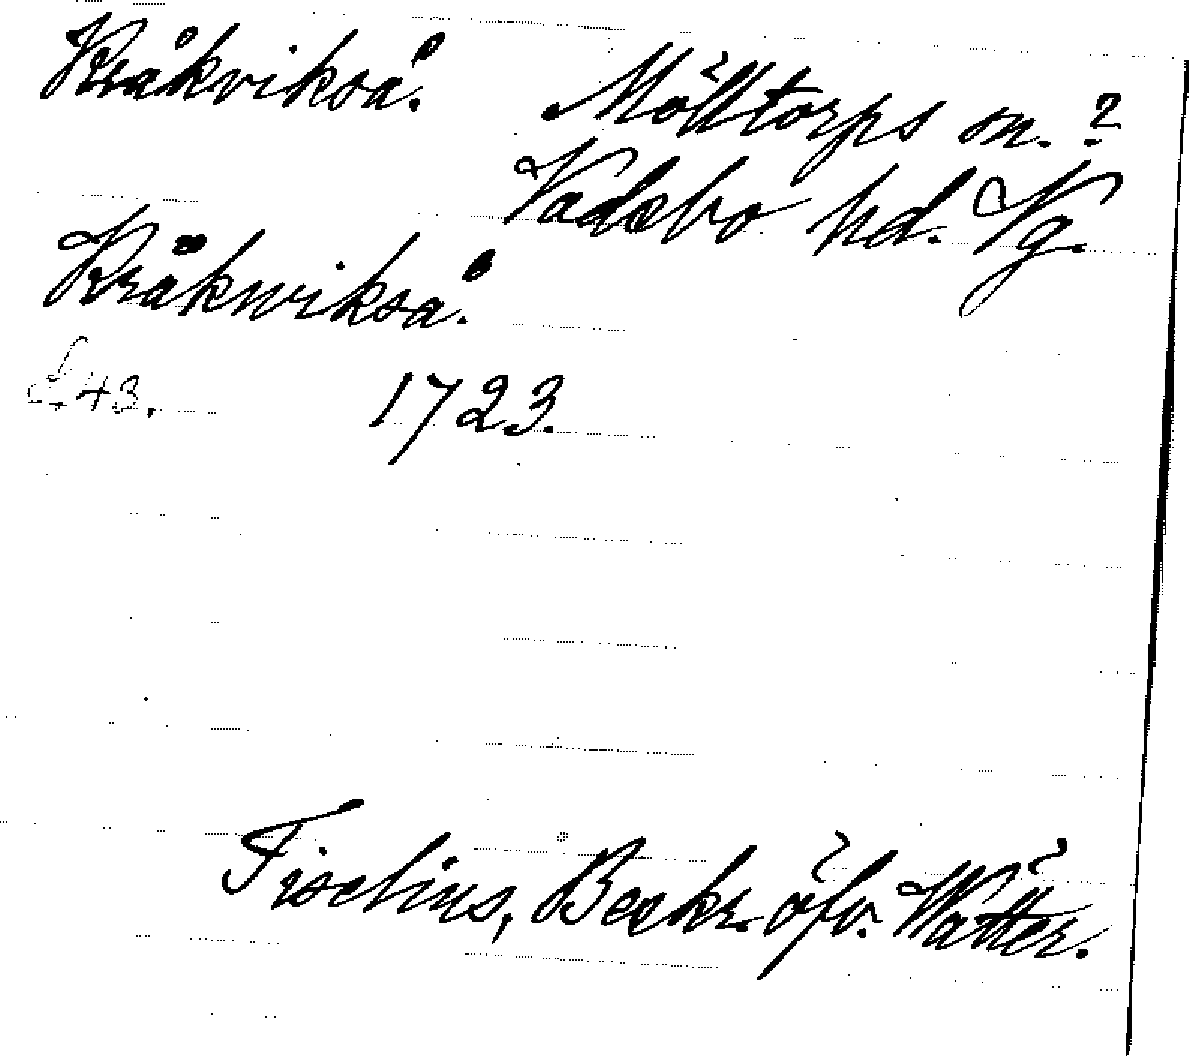 Kråkvikså.
Mölltorps sn. ?
Vadsbo hd. Vg.
Kråkwikså.
43. 1723.
Tiselius, Beskr. öfv. Wätter.